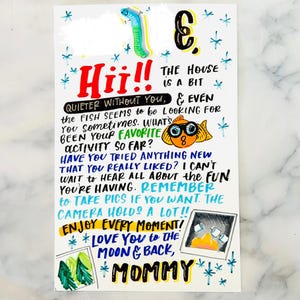 E.
Hii!! THE HOUSE
IS A BIT
QUIETER WITHOUT YOU, & EVEN
THE FISH SEEMS TO BE LOOKING FOR
YOU SOMETIMES. WHATS
BEEN YOUR FAVORITE
ACTIVITY SO FAR?
HAVE YOU TRIED ANYTHING NEW
THAT YOU REALLY LIKED? I CAN'T
WAIT TO HEAR ALL ABOUT THE FUN
YOU'RE HAVING. REMEMBER
TO TAKE PICS IF YOU WANT. THE
CAMERA HOLDS A LOT!!
ENJOY EVERY MOMENT!
LOVE YOU TO THE
MOON & BACK,
MOMMY